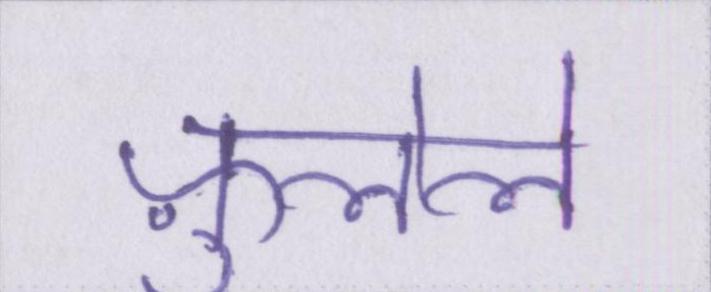 फ़ुलेले